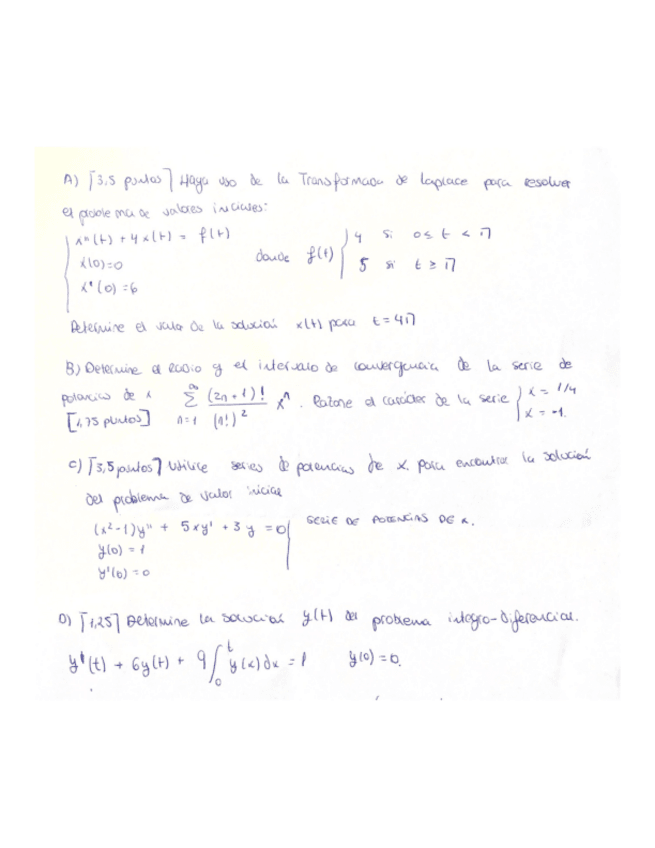 A) [3,5 puntos] Haga uso de la Transformada de Laplace para resolver
el problema de valores iniciales:
x''(t) + 4x(t) = f(t)
x(0)=0
x'(0)=6
donde f(t) { 4 si 0≤t<π
5 si t≥π
Determine el valor de la solución x(t) para t=4π
B) Determine el radio y el intervalo de convergencia de la serie de
potencias de x ∑_{n=1}^{∞} (2n+1)!/(n!)² xⁿ. Razone el carácter de la serie { x = 1/4
[1,75 puntos] x = -1.
C) [3,5 puntos] Utilice series de potencias de x para encontrar la solución
del problema de valor inicial
(x²-1)y'' + 5xy' + 3y = 0 SERIE DE POTENCIAS DE x.
y(0) = 1
y'(0) = 0
D) [1,25] Determine la solución y(t) del problema integro-diferencial.
y'(t) + 6y(t) + 9∫₀ᵗ y(x)dx = 1 y(0)=0.